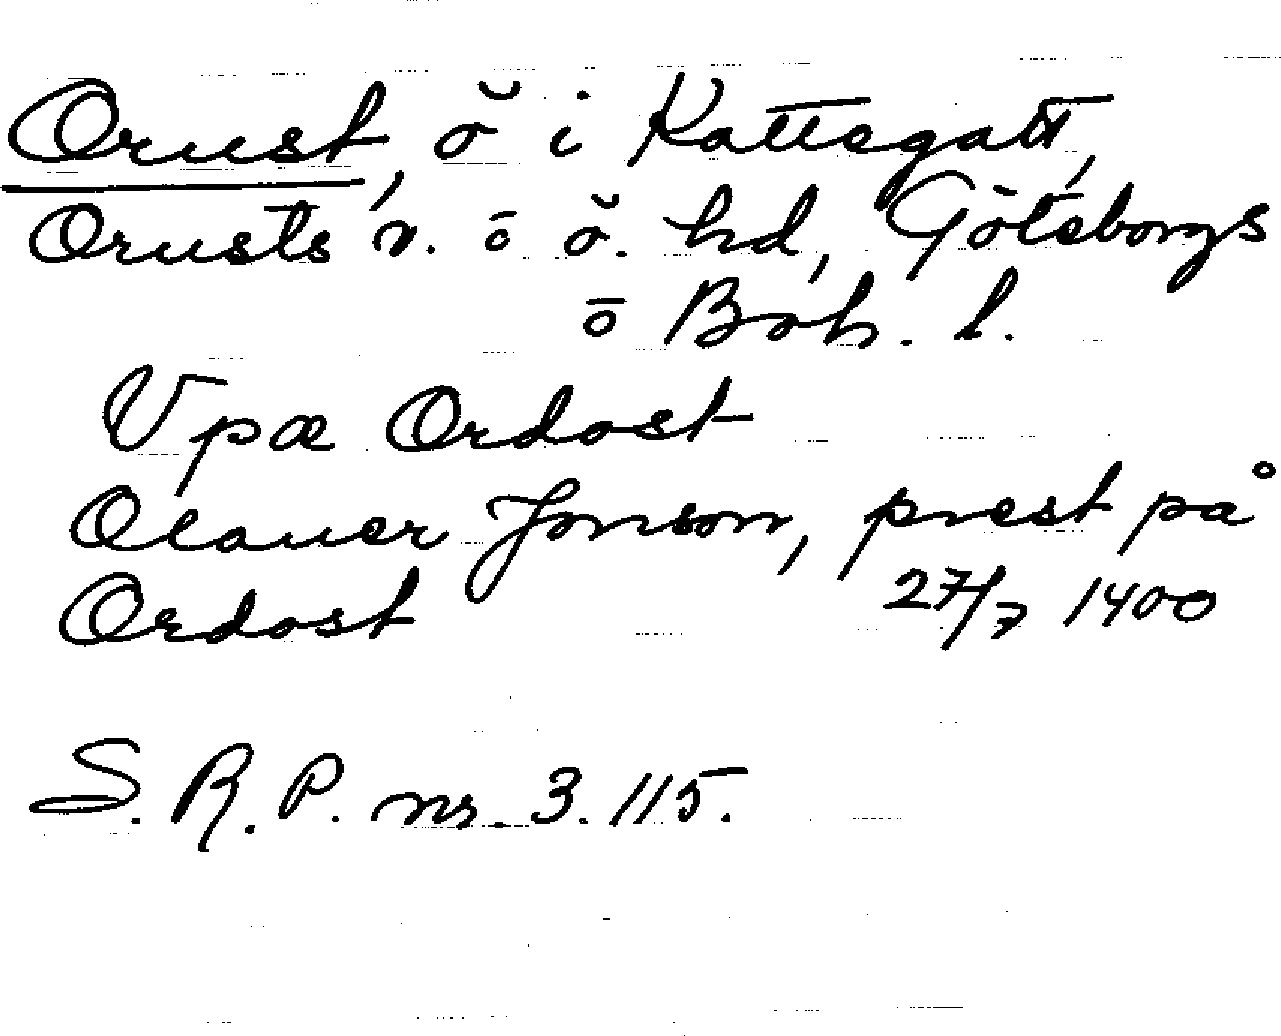 Orust, ö i Kattegatt,
Orusts v. ō ö. hd, Göteborgs
ō Boh. l.
Vpæ Ordost
Olauer Jonson, prest på
Ordost 27/7 1400
S.R.P. nr. 3.115.